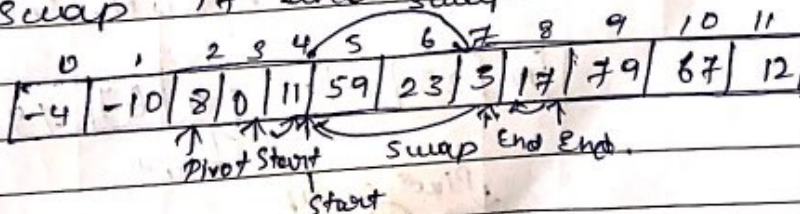 swap
0 1 2 3 4 5 6 7 8 9 10 11
-4 -10 8 0 11 59 23 3 17 79 67 12
Pivot Start swap End End.
Start